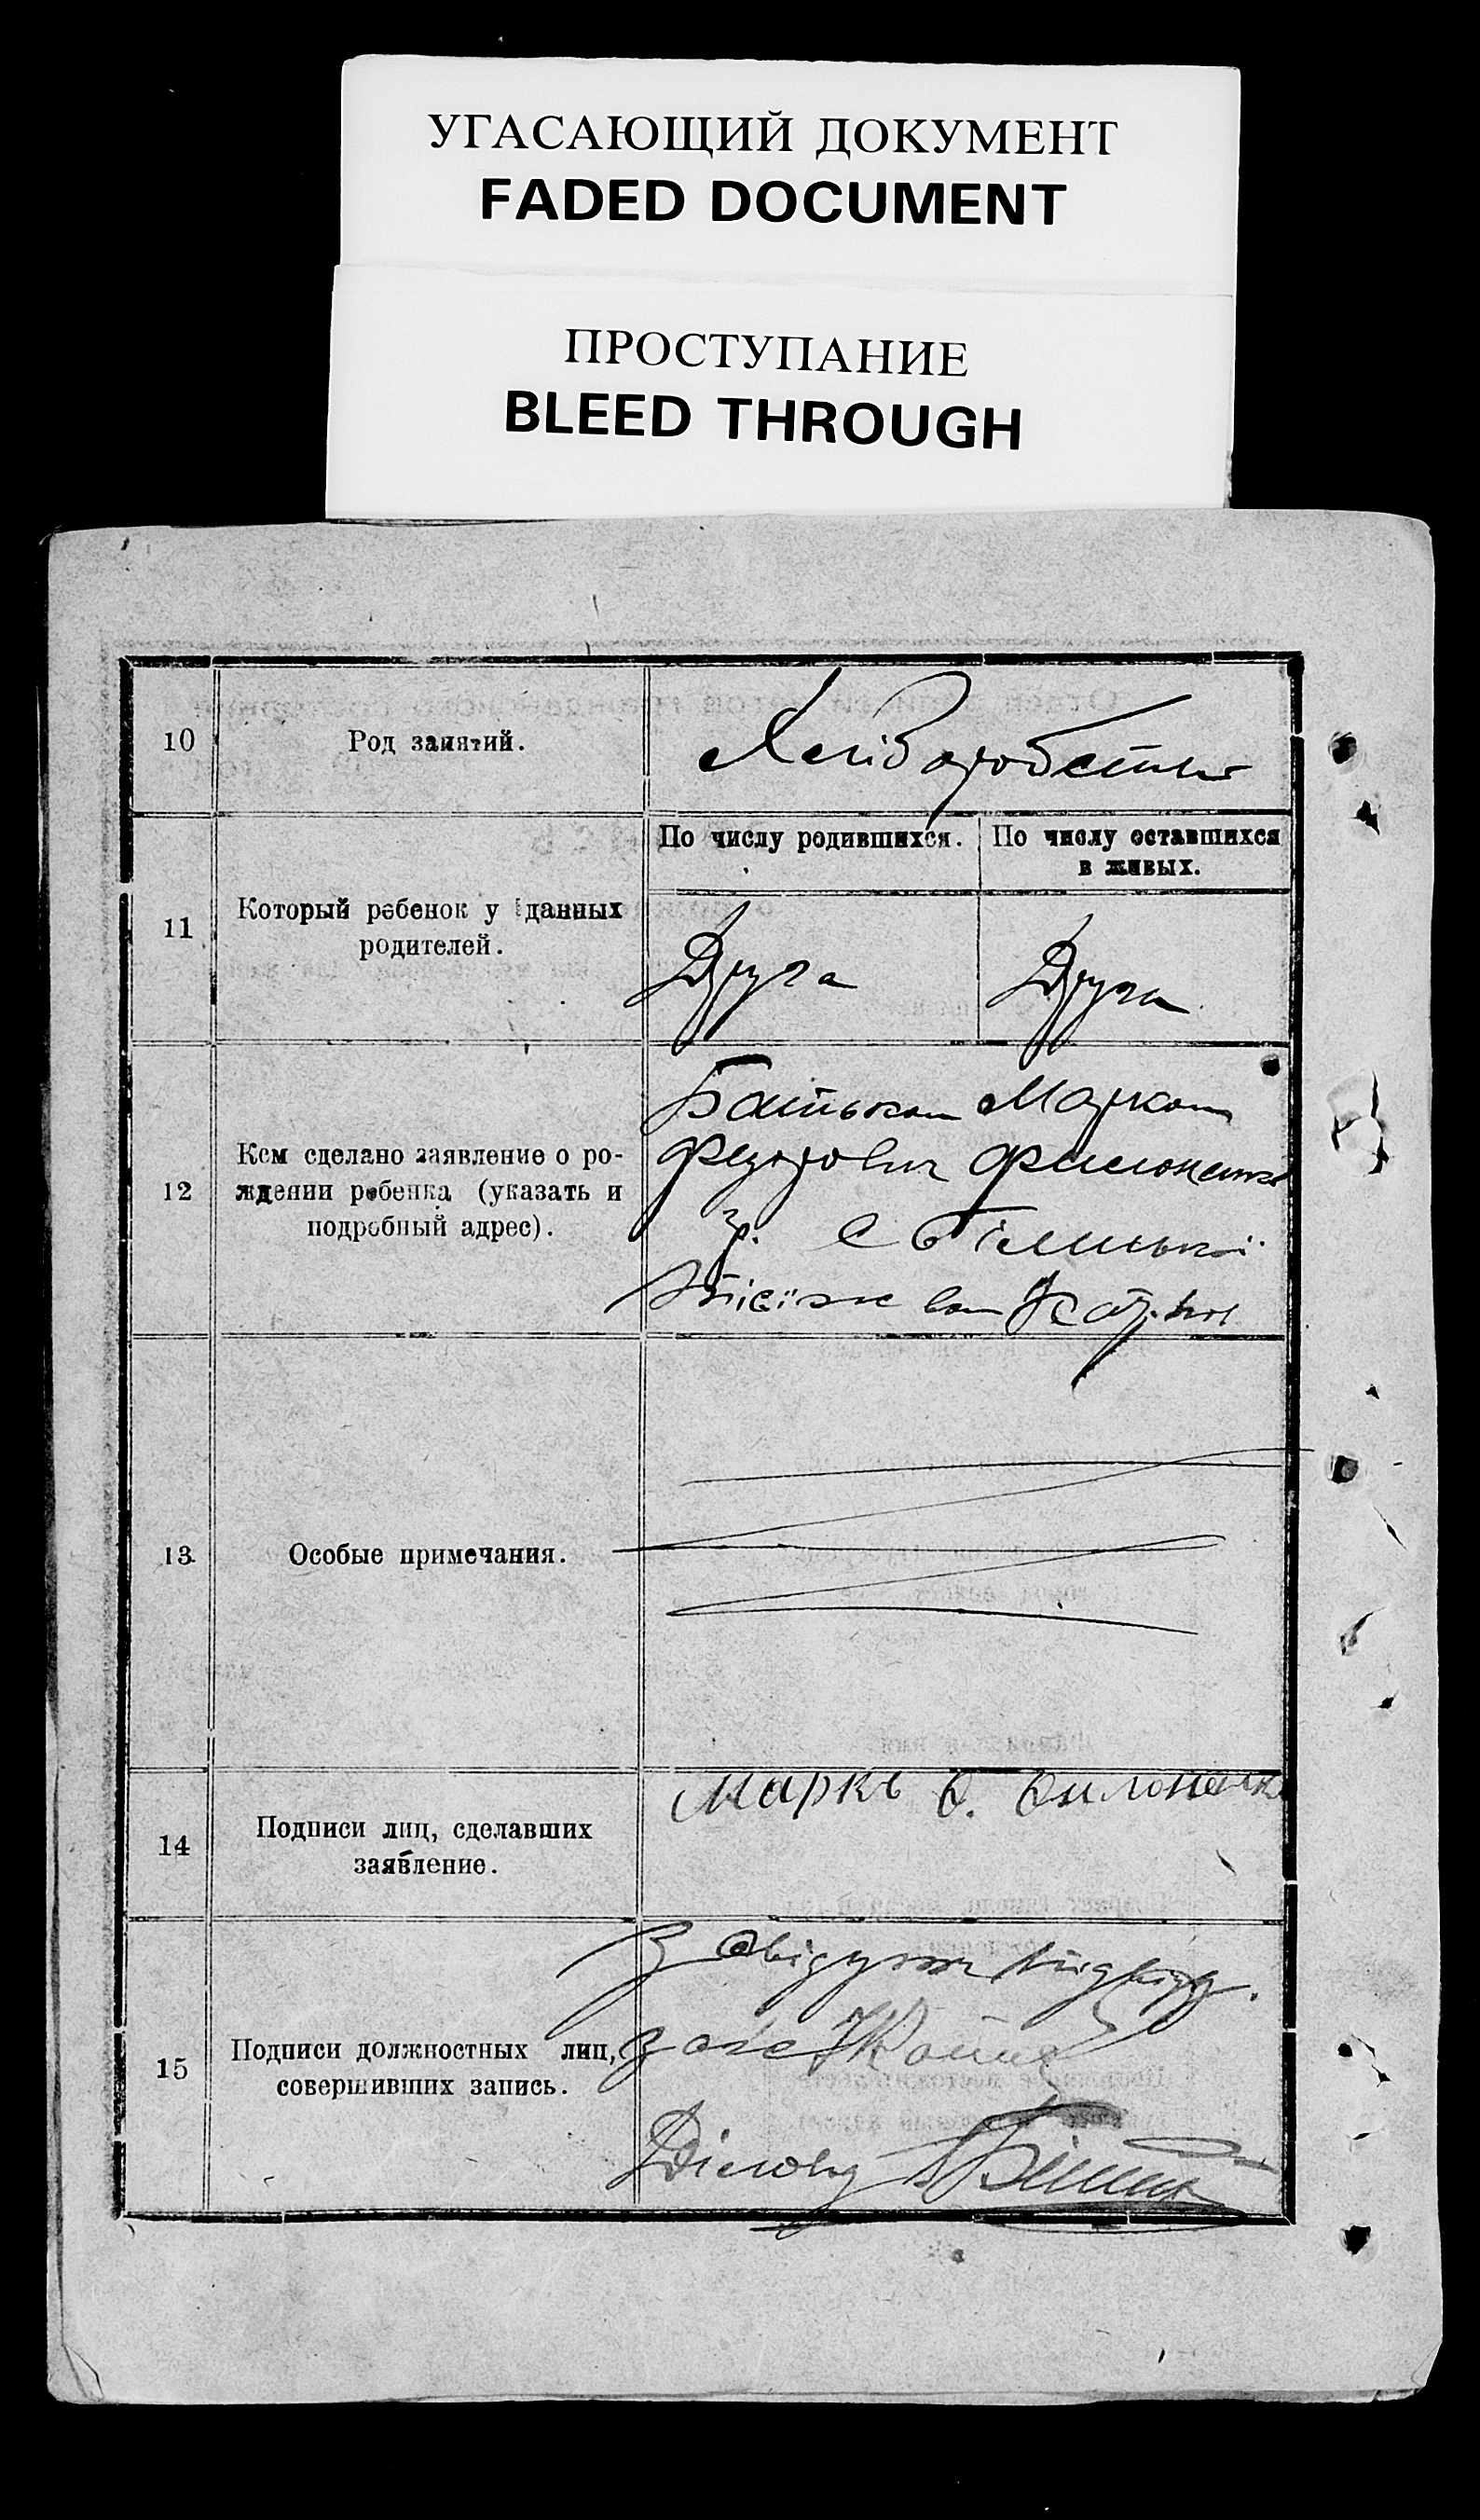 УГАСАЮЩИЙ ДОКУМЕНТ
FADED DOCUMENT
ПРОСТУПАНИЕ
BLEED THROUGH
10
Род занятий.
Хліборобство
11
Который ребенок у данных
родителей.
По числу родившихся.
По числу оставшихся
в живых.
Друга
Друга
12
Кем сделано заявление о ро-
ждении ребенка (указать и
подробный адрес).
Батьком Марком
Федорович Филоненко
гр. с
13
Особые примечания.
14
Подписи лиц, сделавших
заявление.
Маркъ Ф. Филоненк
15
Подписи должностных лиц,
совершивших запись.
Завідуючи
Діловод